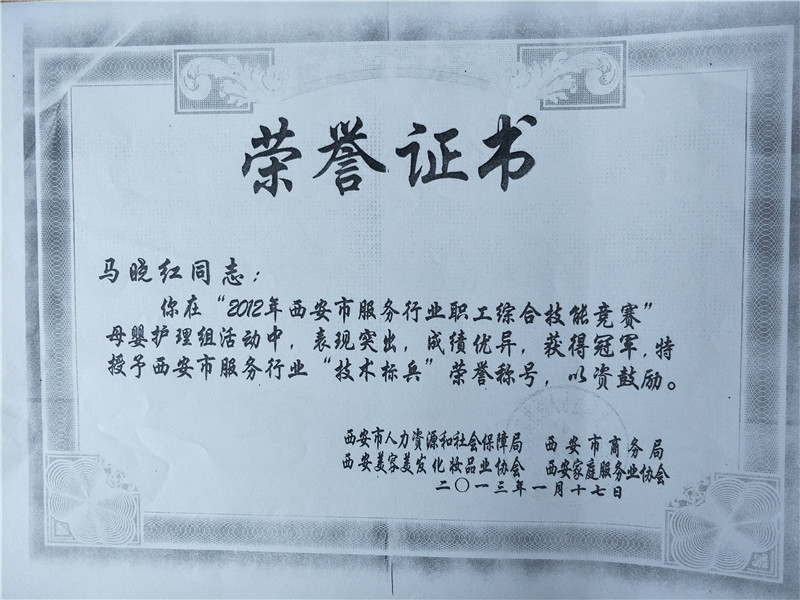 荣誉证书
马晓红同志：
你在“2012年西安市服务行业职工综合技能竞赛”
母婴护理组活动中，表现突出，成绩优异，获得冠军，特
授予西安市服务行业“技术标兵”荣誉称号，以资鼓励。
西安市人力资源和社会保障局 西安市商务局
西安美容美发化妆品业协会 西安家庭服务业协会
二〇一三年一月十七日